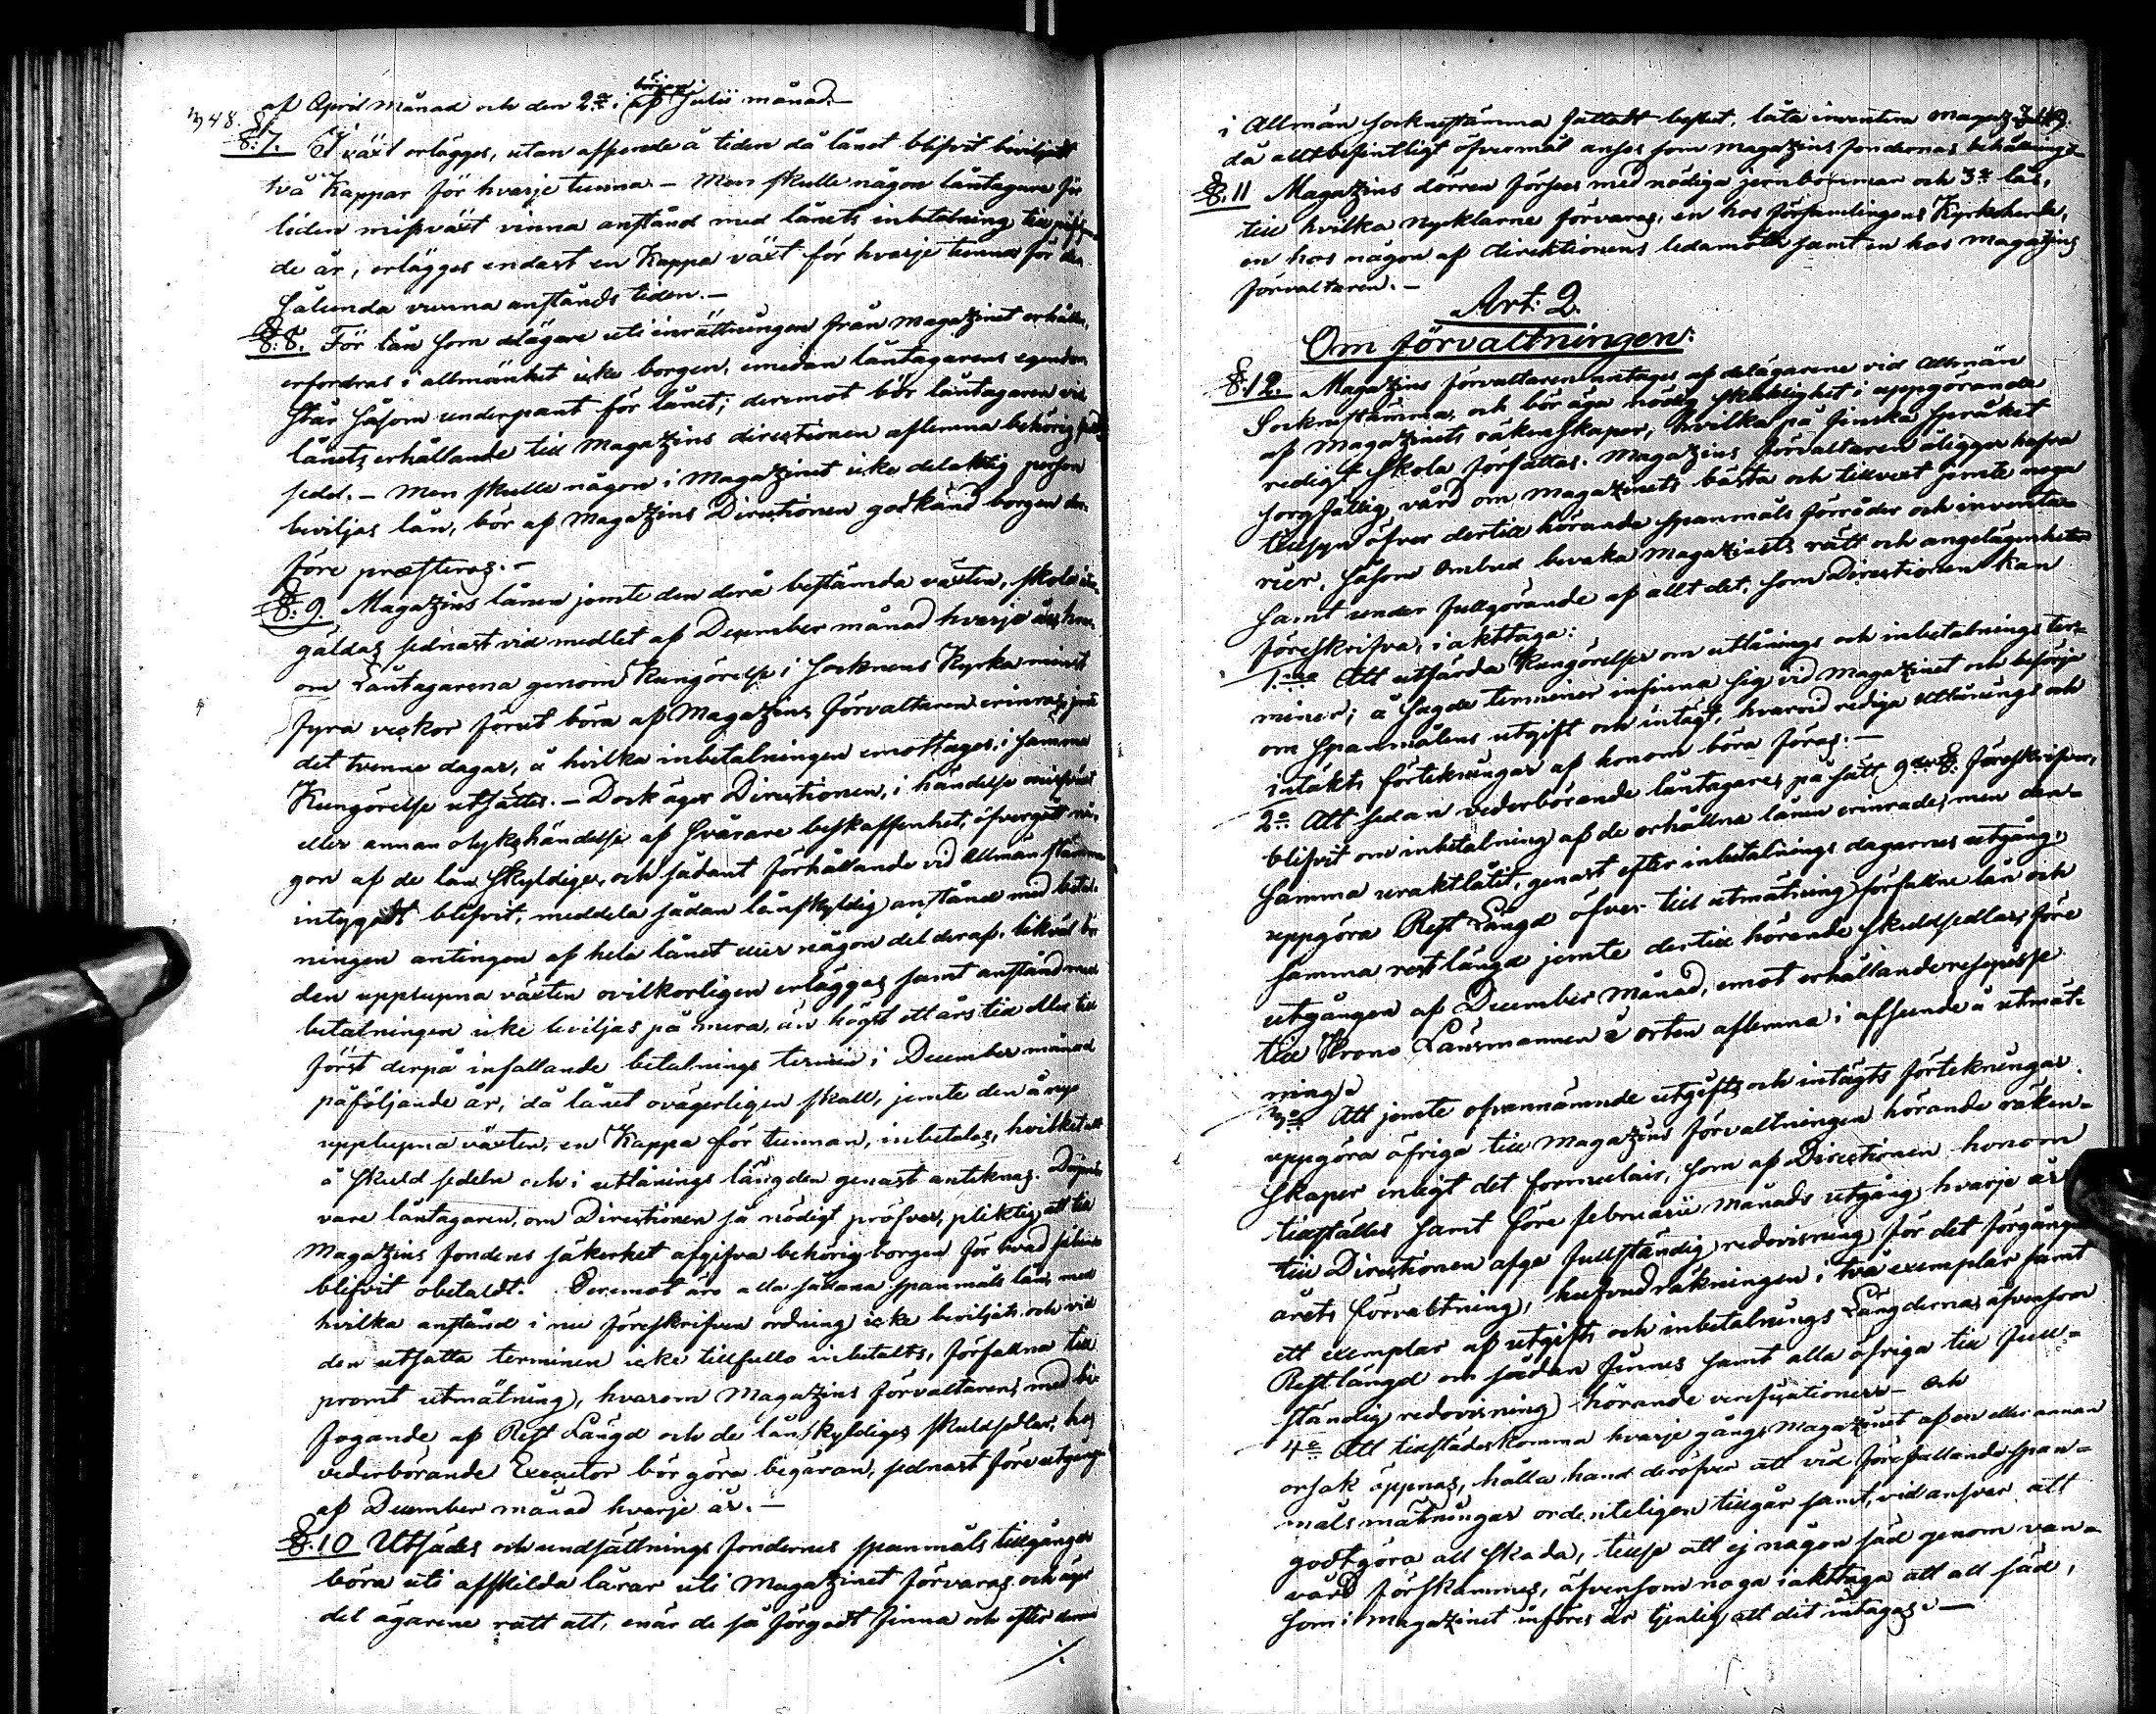 348.
af April månad och den 2:a i början af Julii månad.—
§: 7. I växt erlägges, utan afseende å tiden då lånet blifvit beviljadt
två Kappar för hvarje tunna.— Men skulle någon låntagare för
liden missväxt vinna anstånd med lånets inbetalning till påföljan-
de år, erlägges endast en Kappa växt för hvarje tunna för den
sålunda vunna anstånds tiden.—
§: 8. För lån som delägare uti inrättningen från Magazinet erhålla,
erfordras i allmänhet icke borgen, emedan låntagarens egendom
står såsom underpant för lånet; deremot bör låntagaren vid
lånets erhållande till Magazins directionen aflemna behörig skuld
sedel.— Men skulle någon i Magazinet icke delaktig person
beviljas lån, bör af Magazins Directionen godkänd borgen der-
före præsteras.—
§: 9. Magazins lånen jemte den derå bestämda växten, skola
gäldas sednast vid medlet af December månad hvarje år, hvar-
om Låntagarena genom Kungörelse i Socknens Kyrka minst
fyra veckor förut böra af Magazins förvaltaren erinras, jemte
det tvenne dagar, å hvilka inbetalningen emottages, i samma
Kungörelse utsättes.— Dock äger Directionen, i händelse missväxt
eller annan olyckshändelse af svårare beskaffenhet, öfvergått nå-
gon af de lån skyldige, och sådant förhållande vid Allmän stämma
intygadt blifvit, meddela sådan lånskyldig anstånd med betal-
ningen antingen af hela lånet eller någon del deraf, likväl bör
den upplupna växten ovilkorligen erläggas samt anstånd med
betalningen icke beviljas på mera, än högst ett års tid eller till
först derpå infallande betalnings termin i December månad
påföljande år, då lånet ovägerligen skall, jemte den å nyo
upplupna växten, en Kappa för tunnan, inbetalas, hvilket allt
å skuld sedeln och i utlånings längden genast anteknas.
vare låntagaren, om Directionen så nödigt pröfvar, pliktig, att till
Magazins fondens säkerhet afgifva behörig borgen för hvad
blifvit obetaldt. Deremot äro alla sådana spanmåls lån, med
hvilka anstånd i nu föreskrifven ordning icke beviljats och vid
den utsatta terminen icke tillfullo inbetalts, förfallna till
promt utmätning, hvarom Magazins förvaltaren, med bi-
fogande af Rest Längd och de lånskyldiges skuldsedlar, hos
vederbörande Executor bör göra begäran, sednast före utgången
af December månad hvarje år.—
§: 10 Utsädes och undsättnings fondernes spanmåls tillgångar
böra uti afskilda lårar uti Magazinet förvaras och äge
del ägarene rätt att, enär de så förgodt finna och efter derom
./.
349.
i Allmän sockenstämma fattadt beslut, låta inventera Magazinet
då allt befintligt öfvermål anses som Magazins fondernas behållning.—
§: 11 Magazins dörren förses med nödiga jernbommar och 3:e lås,
till hvilka nycklarne förvaras, en hos församlingens Kyrkoherde,
en hos någon af direktionens ledamöter samt en hos Magazins
förvaltaren.—
Art: 2.
Om förvaltningen:
§: 12. Magazins förvaltaren antages af delägarene vid Allmän
Sockenstämma, och bör äga nödig skicklighet i uppgörande
af Magazinets räkenskaper, hvilka på finska språket
redigt skola författas. Magazins förvaltaren åligger hafva
sorgfällig vård om Magazinets bästa och tillväxt jemte noga
tillsyn öfver dertill hörande spanmåls förråder och inventa-
rier, såsom Ombud bevaka Magazinets rätt och angelägenheter
samt under fullgörande af allt det, som Directionen kan
föreskrifva, iakttaga:
1:mo Att utfärda Kungörelser om utlånings och inbetalnings ter-
miner; å sagde terminer infinna sig vid Magazinet och besörja
om Spanmålens utgift och intägt, hvarvid rediga utlånings och
intäkts förtekningar af honom böra föras.—
2:o Att sedan vederbörande låntagare, på sätt 9:de §: föreskrifver,
blifvit om inbetalning af de erhållna lånen erinrade, men den-
samma uraktlåtit, genast efter inbetalnings dagarnes utgång,
uppgöra Rest Längd öfver till utmätning förfallne lån och
samma rest längd jemte dertill hörande skuldsedlar, före
utgången af December månad, emot erhållande recepisse
till Krono Länsmannen å orten aflemna i afseende å utmät-
ning.
3:o Att jemte ofvannämnde utgifts och intägts förtekningar
uppgöra öfriga till Magazins förvaltningen hörande räken-
skaper enligt det formulair, som af Directionen honom
tillställes samt före februarii månads utgång hvarje år
till Directionen afge fullständig redovisning för det förgångna
årets förvaltning, hufvudräkningen i två exemplar samt
ett exemplar af utgifts och inbetalnings Längderna, äfvensom
Restlängd om sådan finnes samt alla öfriga till full-
ständig redovisning hörande verificationer — och
4:o Att tillstädeskomma hvarje gång Magazinet af en eller annan
orsak öppnas, hålla hand deröfver att vid förefallande span-
måls mätningar ordenteligen tillgår samt, vid ansvar att
godtgöra all skada, tillse att ej någon säd genom van-
vård förskämmes, äfvensom noga iakttaga att all säd,
som i Magazinet införes är tjenlig att dit intagas.—